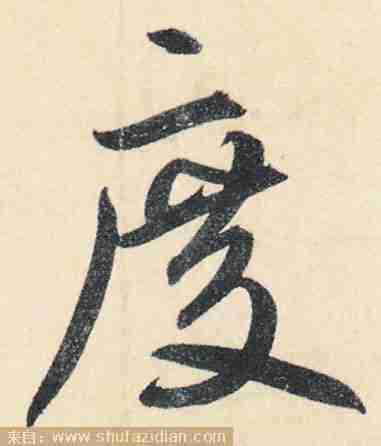 度
来自：www.shufazidian.com